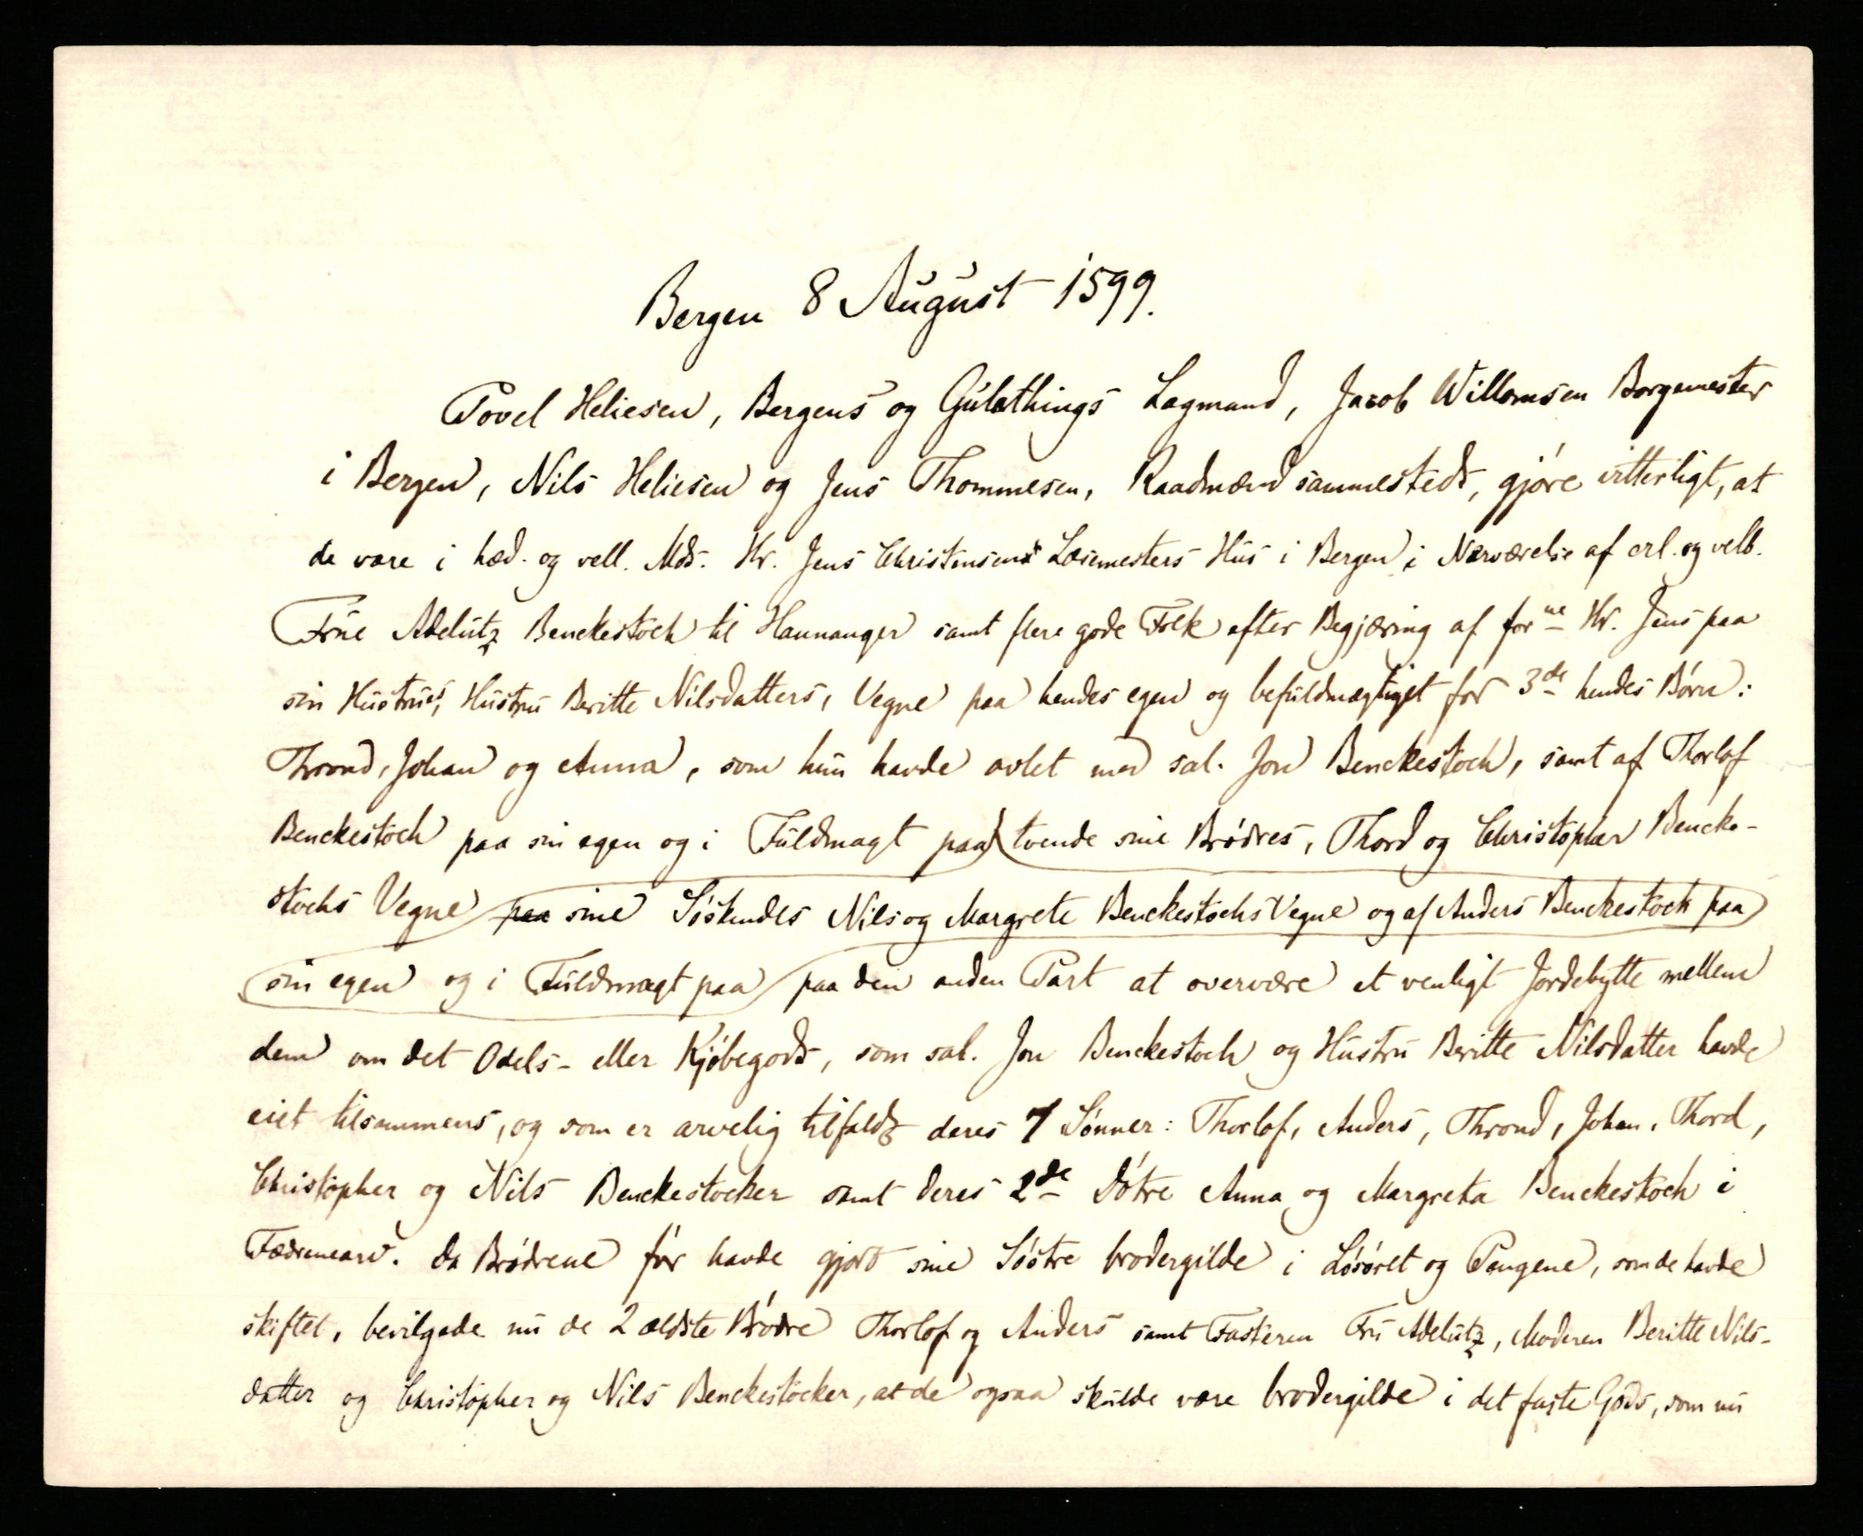 Bergen 8 August 1599.
Povel Heliesen, Bergens og Gulathings Lagmand, Jacob Willomsen Borgemester
i Bergen, Nils Heliesen og Jens Thommesen, Raadmænd sammesteds, gjøre vitterligt, at
de vare i hæd. og vell. Mds. Hr. Jens Christensens Læsemesters Hus i Bergen i Nærværelse af erl. og velb.
Frue Adelutz Benckestoch til Hannanger samt flere gode Folk efter Begjæring af forne Hr. Jens paa
sin Hustrus, Hustru Beritte Nilsdatters, Vegne paa hendes egen og befuldmægtiget for 3de hendes Børn:
Thrond, Johan og Anna, som hun havde avlet med sal. Jon Benckestoch, samt af Thorlof
Benckestoch paa sin egen og i Fuldmagt paa tvende sine Brødres, Thord og Christopher Bencke-
stochs Vegne paa sine Søskendes Nils og Margrete Benckestochs Vegne og af Anders Benckestock paa
sin egen og i Fuldmagt paa paa den anden Part at overvære et venligt Jordebytte mellem
dem om det Odels- eller Kjøbegods, som sal. Jon Benckestoch og Hustru Beritte Nilsdatter havde
eiet tilsammens, og som er arvelig tilfaldt deres 7 Sønner: Thorlof, Anders, Thrond, Johan, Thord,
Christopher og Nils Benckestocker samt deres 2de Døtre Anna og Margreta Benckestoch i
Fædrenearv. Da Brødrene før havde gjort sine Søstre brodergilde i Løsøret og Pengene, som de havde
skiftet, bevilgede nu de 2 ældste Brødre Thorlof og Anders samt Fasteren Fru Adelutz, Moderen Beritte Nils-
datter og Christopher og Nils Benckestocker, at de ogsaa skulde være brodergilde i det faste Gods, som nu